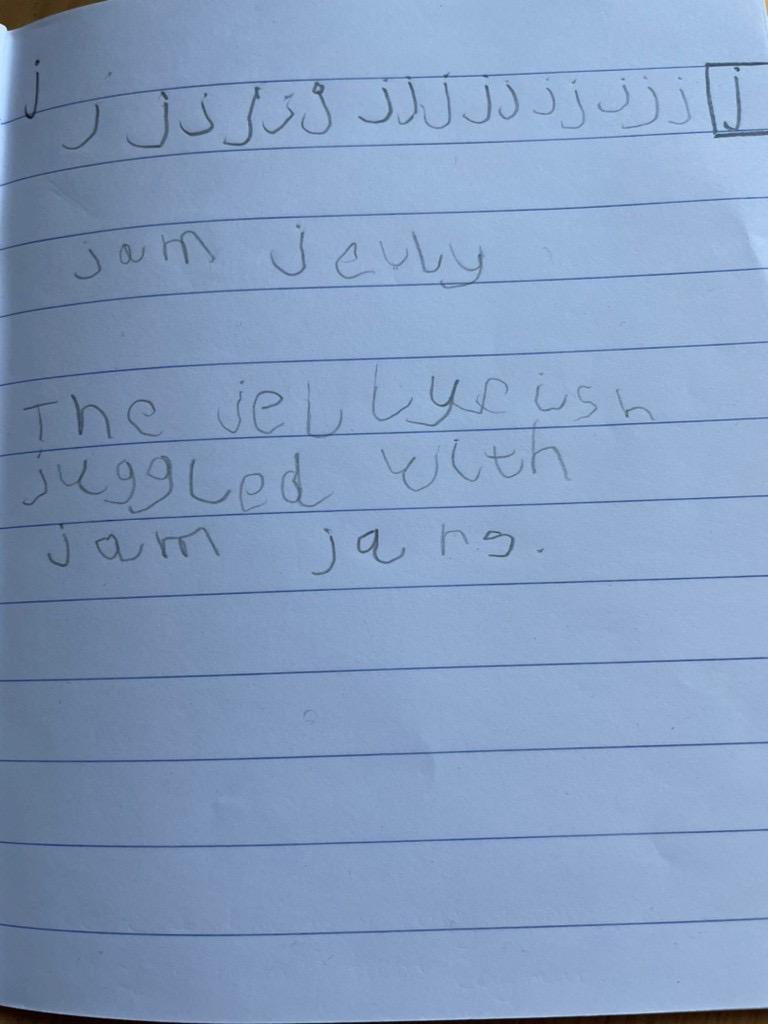 j j j j j j j j j j j j j j j j j j
jam jelly
The jeLLyfish
juggled with
jam jars.